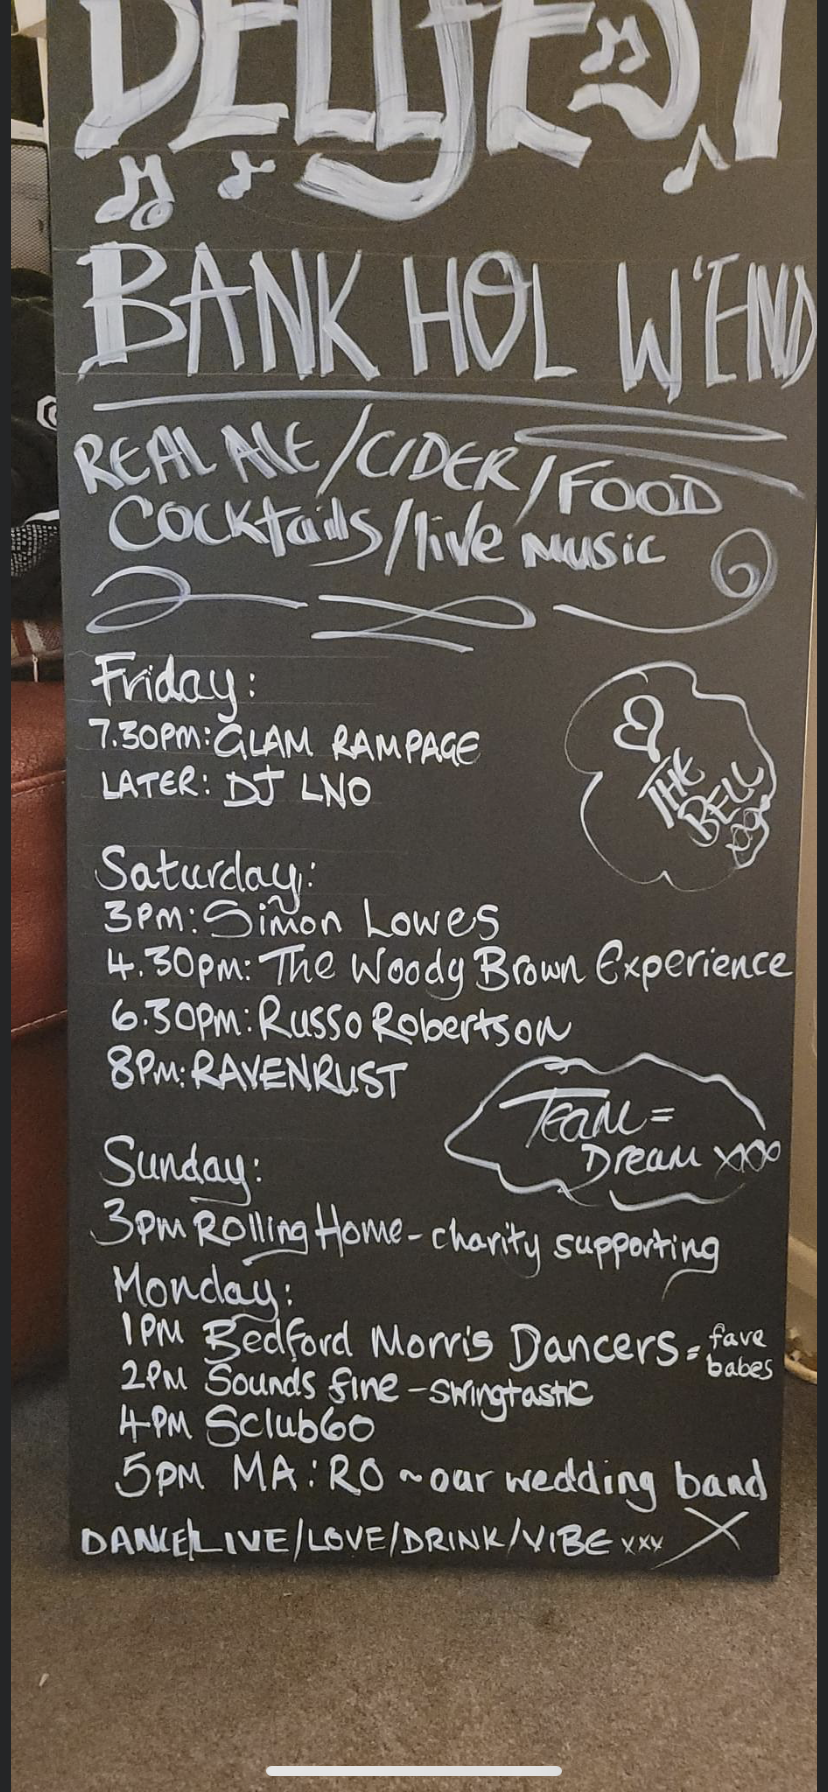 BELLFEST
BANK HOL W'END
REAL ALE/CIDER/FOOD
Cocktails/live MUSIC
Friday:
7.30PM: GLAM RAMPAGE
LATER: DJ LNO
THE
BELL
xxx
Saturday:
3PM: Simon Lowes
4.30pm: The Woody Brown Experience
6.30pm: Russo Robertson
8PM: RAVENRUST
TEAM =
DREAM xxxx
Sunday:
3pm Rolling Home - charity supporting
Monday:
1PM Bedford Morris Dancers = fave
babes
2PM Sounds fine - swingtastic
4PM Sclub60
5PM MA:RO ~ our wedding band
DANCE/LIVE/LOVE/DRINK/VIBE xxx X